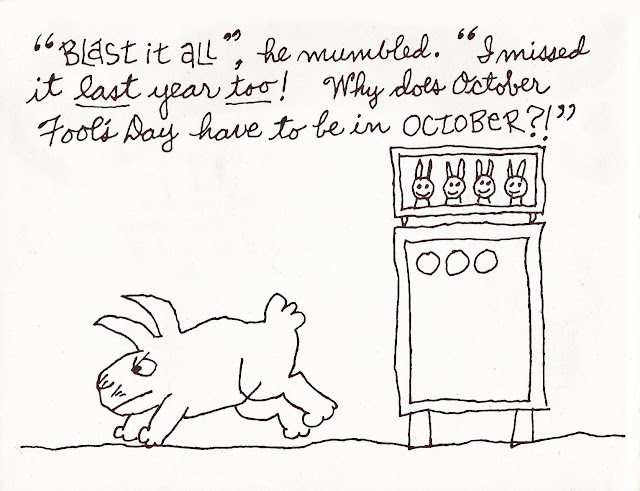 “Blast it all”, he mumbled. “I missed
it last year too! Why does October
Fool's Day have to be in OCTOBER?!”